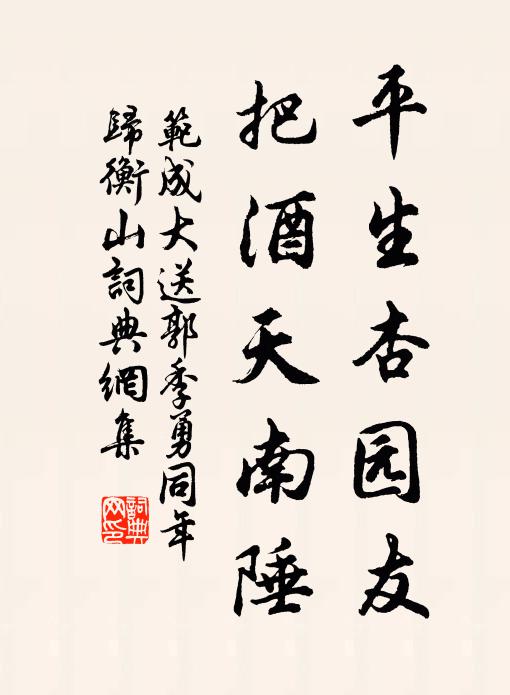 平生杏园友
把酒天南陲
範成大送郭季勇同年
歸衡山詞典網集
詞典網印